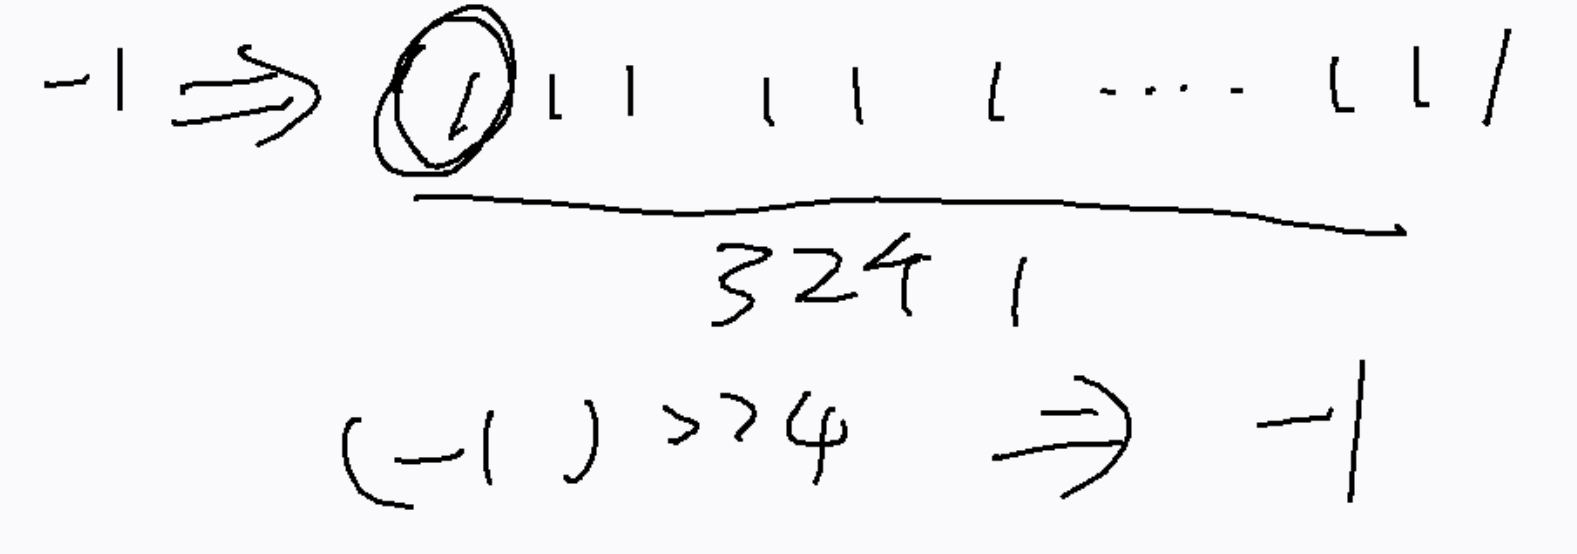 -1 ⇒ 1 1 1 1 1 1 ····- 1 1 1
324 1
(-1) >>4 ⇒ -1